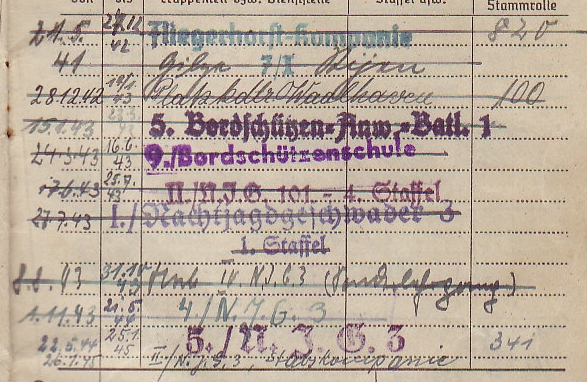 von bis Truppenteil bzw. Dienststelle Stammrolle
21.5. 27.12. Fliegerhorst-Kompanie 820
41 42 7/I Dijon
28.12.42 19/1 43 Platzkdtr. 100
15.1.43 5. Bordschützen-Anw.-Batl. 1
24.3.43 16.6. 43 9./Bordschützenschule
17.6.43 25.7. 43 II/N.J.G. 101 - 4. Staffel
27.7.43 I./Nachtjagdgeschwader 3
1. Staffel
8.8.43 31.10 43 Stab IV. N.J.G 3
1.11.43 21.5. 44 4./N.J.G. 3
22.5.44 25.1. 45 5./N.J.G.3 341
26.1.45 II/N.J.G.3, Stabskompanie